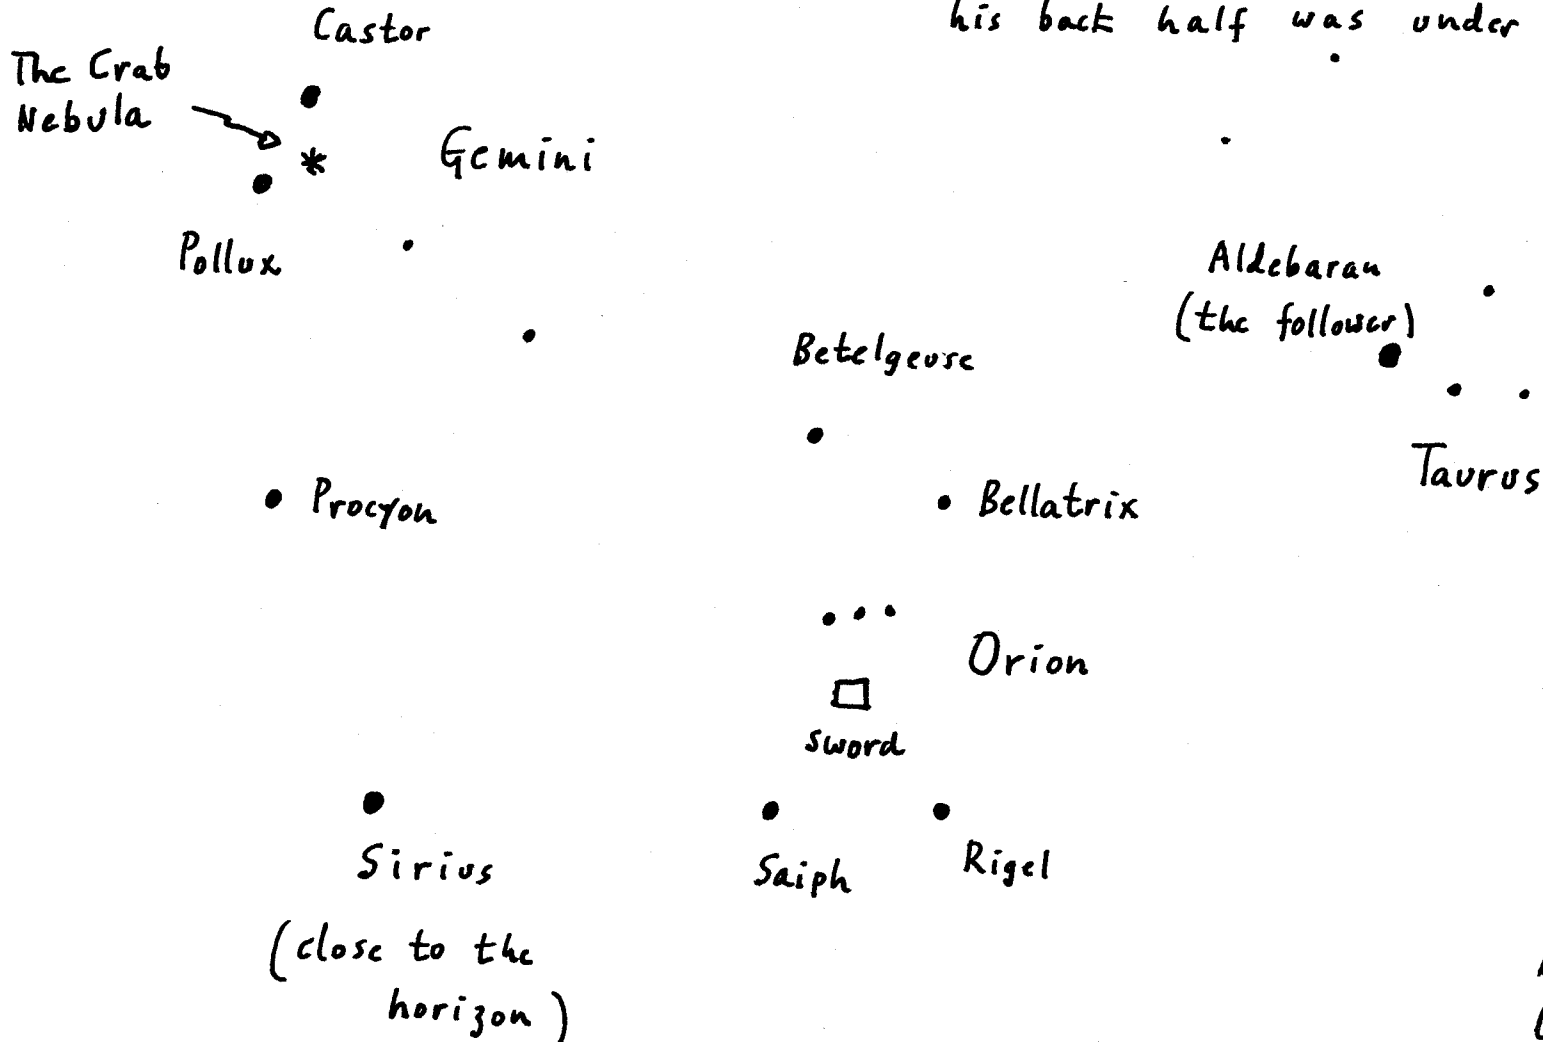 his back half was under
Castor
The Crab
Nebula
Gemini
Pollux
Aldebaran
(the follower)
Betelgeuse
Taurus
Procyon
Bellatrix
Orion
sword
Sirius
Saiph
Rigel
(close to the
horizon)